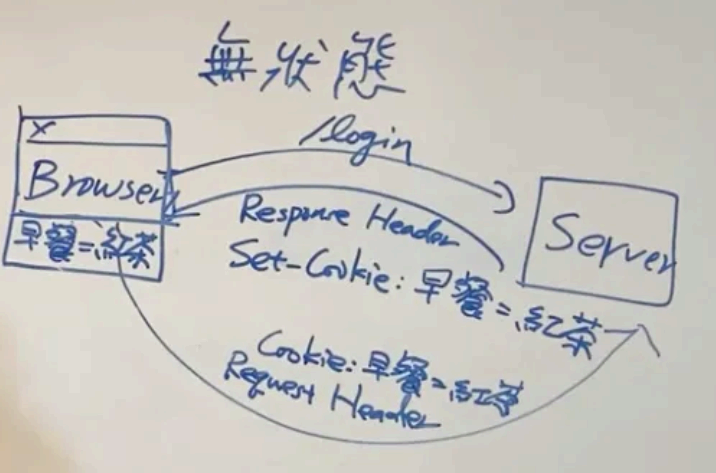 無狀態
/login
X
Browser
早餐=紅茶
Response Header
Set-Cookie: 早餐=紅茶
Server
Cookie: 早餐=紅茶
Request Header